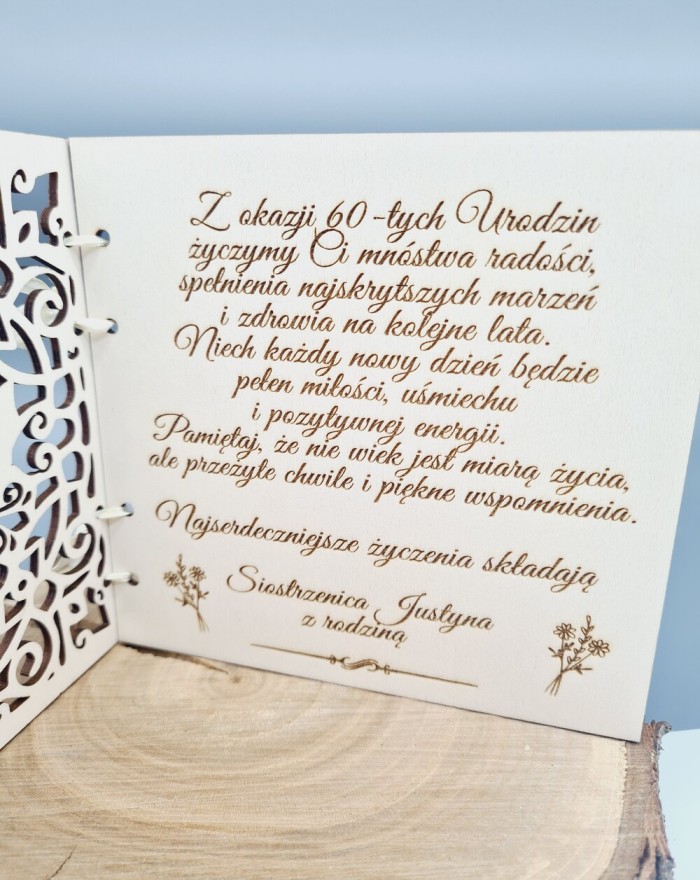 Z okazji 60-tych Urodzin
życzymy Ci mnóstwa radości,
spełnienia najskrytszych marzeń
i zdrowia na kolejne lata.
Niech każdy nowy dzień będzie
pełen miłości, uśmiechu
i pozytywnej energii.
Pamiętaj, że nie wiek jest miarą życia,
ale przeżyte chwile i piękne wspomnienia.
Najserdeczniejsze życzenia składają
Siostrzenica Justyna
z rodziną